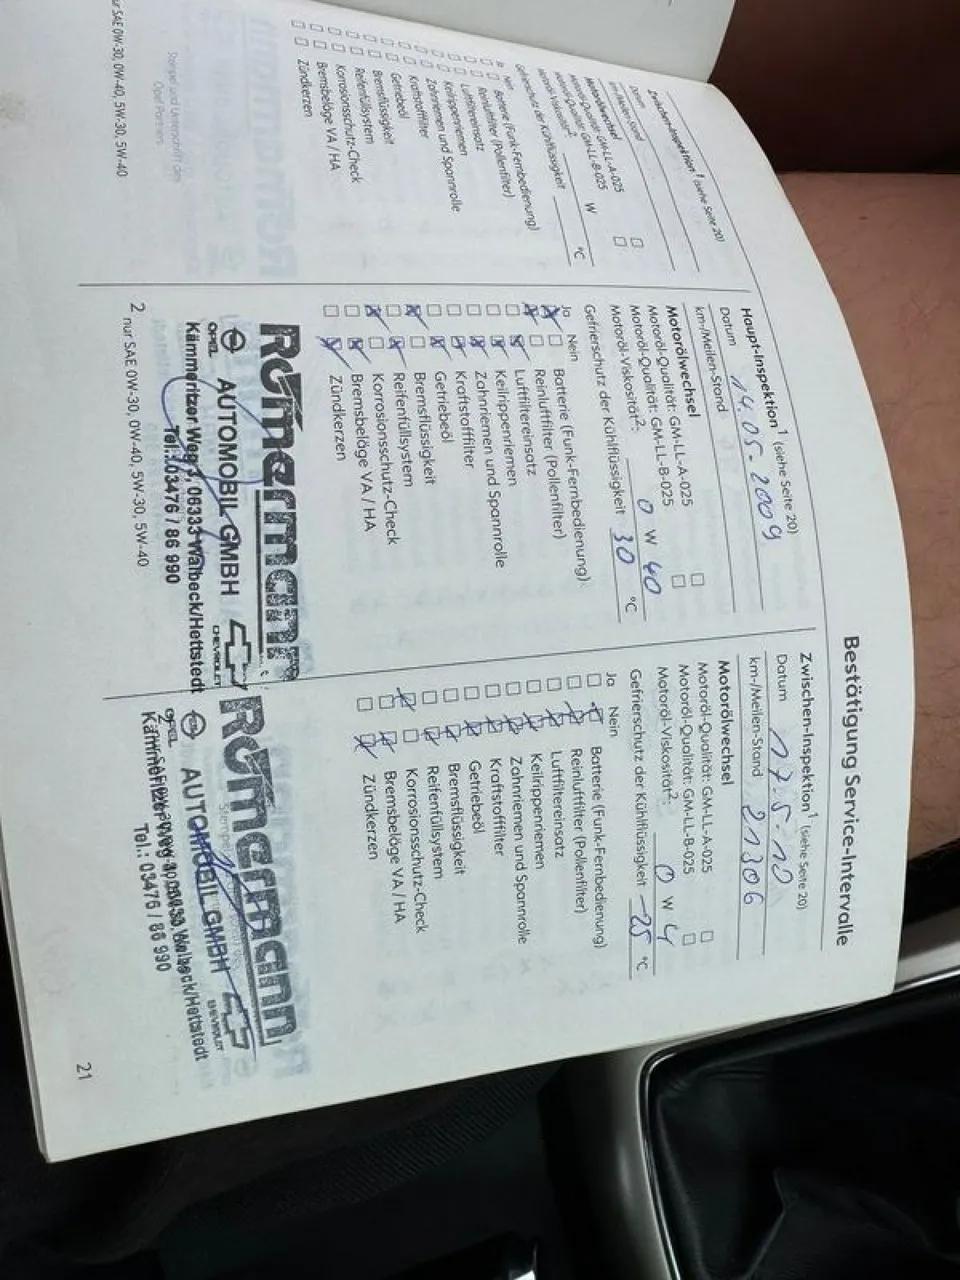 Bestätigung Service-Intervalle
Zwischen-Inspektion¹ (siehe Seite 20)
Datum
km-/Meilen-Stand
Motorölwechsel
Motoröl-Qualität: GM-LL-A-025 ☐
Motoröl-Qualität: GM-LL-B-025 ☐
Motoröl-Viskosität²: W
Gefrierschutz der Kühlflüssigkeit °C
Ja Nein
Batterie (Funk-Fernbedienung)
Reinluftfilter (Pollenfilter)
Luftfiltereinsatz
Keilrippenriemen
Zahnriemen und Spannrolle
Kraftstofffilter
Getriebeöl
Bremsflüssigkeit
Reifenfüllsystem
Korrosionsschutz-Check
Bremsbeläge VA / HA
Zündkerzen
Stempel und Unterschrift des
Opel Partners
nur SAE 0W-30, 0W-40, 5W-30, 5W-40
Haupt-Inspektion¹ (siehe Seite 20)
Datum 14.05.2009
km-/Meilen-Stand
Motorölwechsel
Motoröl-Qualität: GM-LL-A-025 ☐
Motoröl-Qualität: GM-LL-B-025 ☐
Motoröl-Viskosität²: 0 W 40
Gefrierschutz der Kühlflüssigkeit 30 °C
Ja Nein
Batterie (Funk-Fernbedienung)
Reinluftfilter (Pollenfilter)
Luftfiltereinsatz
Keilrippenriemen
Zahnriemen und Spannrolle
Kraftstofffilter
Getriebeöl
Bremsflüssigkeit
Reifenfüllsystem
Korrosionsschutz-Check
Bremsbeläge VA / HA
Zündkerzen
Römermann
AUTOMOBIL GMBH
OPEL CHEVROLET
Kämmeritzer Weg 3, 06333 Walbeck/Hettstedt
Tel.: 03476 / 86 990
2 nur SAE 0W-30, 0W-40, 5W-30, 5W-40
Zwischen-Inspektion¹ (siehe Seite 20)
Datum 17.5.10
km-/Meilen-Stand 21306
Motorölwechsel
Motoröl-Qualität: GM-LL-A-025 ☐
Motoröl-Qualität: GM-LL-B-025 ☐
Motoröl-Viskosität²: 0 W 4
Gefrierschutz der Kühlflüssigkeit -25 °C
Ja Nein
Batterie (Funk-Fernbedienung)
Reinluftfilter (Pollenfilter)
Luftfiltereinsatz
Keilrippenriemen
Zahnriemen und Spannrolle
Kraftstofffilter
Getriebeöl
Bremsflüssigkeit
Reifenfüllsystem
Korrosionsschutz-Check
Bremsbeläge VA / HA
Zündkerzen
Römermann
AUTOMOBIL GMBH
OPEL CHEVROLET
Kämmeritzer Weg Walbeck/Hettstedt
Tel.: 03476 / 86 990
21